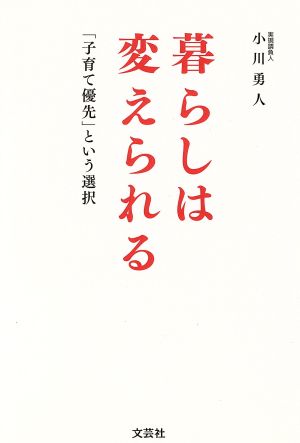 実現請負人
小川勇人
暮らしは
変えられる
「子育て優先」という選択
文芸社